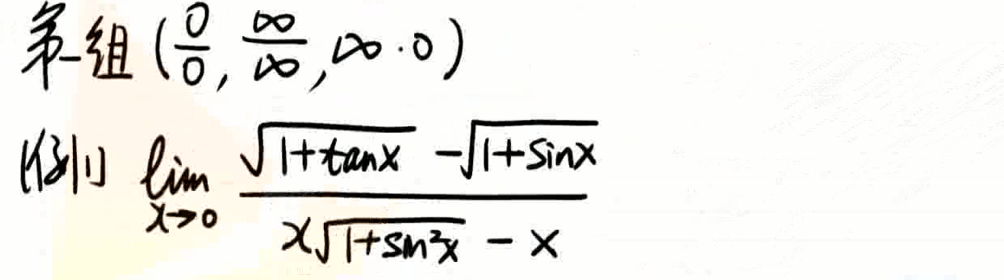 第一组 (0/0, ∞/∞, ∞·0)
例1) lim x→0 (√(1+tanx) - √(1+sinx)) / (x√(1+sin²x) - x)